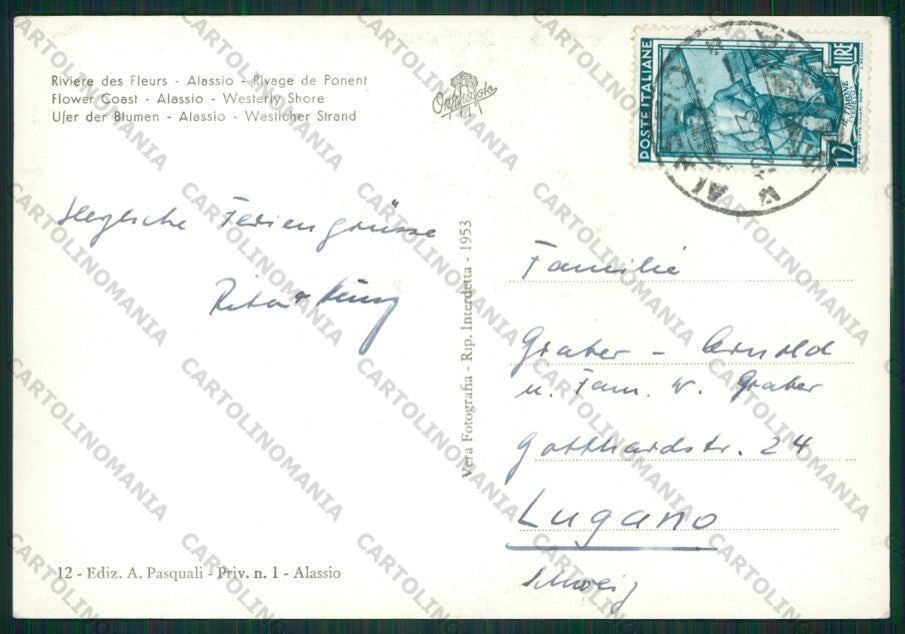 Riviere des Fleurs - Alassio - Rivage de Ponent
Flower Coast - Alassio - Westerly Shore
Ufer der Blumen - Alassio - Weslicher Strand
POSTE ITALIANE
LIRE
12
Herzliche Feriengrüsse
Rita &
Vera Fotografia - Rip. Interdetta - 1953
Familie
Graber - Arnold
u. Fam. W. Graber
Gotthardstr. 24
Lugano
Schweiz
12 - Ediz. A. Pasquali - Priv. n. 1 - Alassio
CARTOLINOMANIA